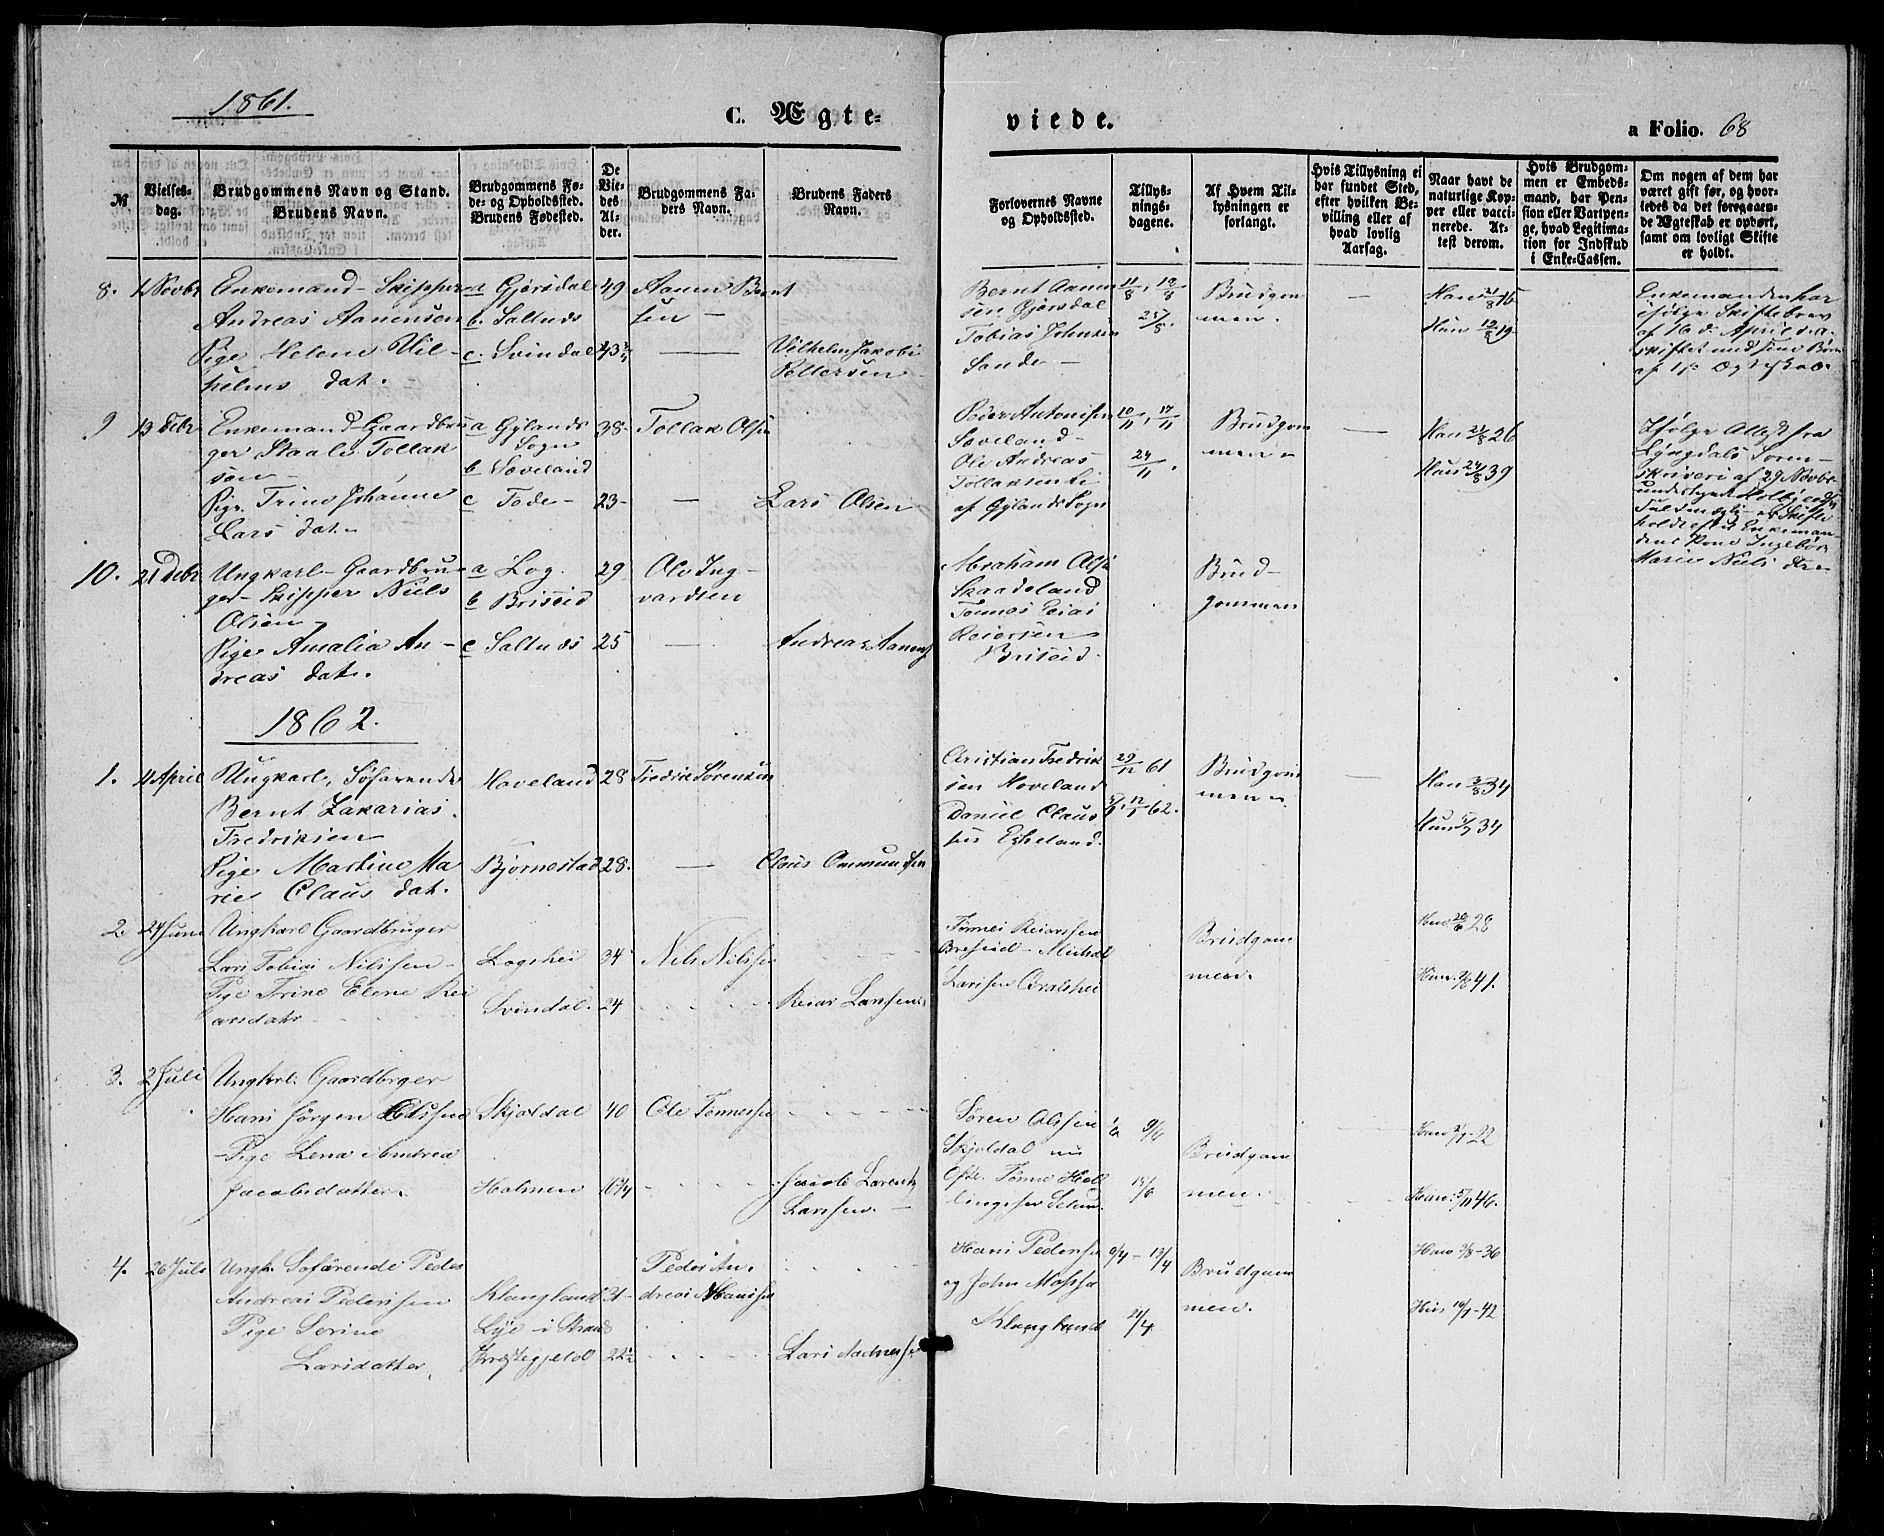 1861.
C. Ægte=
viede.
a Folio. 68
№
Vielses-
dag.
Brudgommens Navn og Stand.
Brudens Navn.
Brudgommens Fø-
de- og Opholdssted.
Brudens Fødested.
De
Vie-
des
Al-
der.
Brudgommens Fa-
ders Navn.
Brudens Faders
Navn.
Forlovernes Navne
og Opholdssted.
Tillys-
nings-
dagene.
Af Hvem Til-
lysningen er
forlangt.
Hvis Tillysning ei
har fundet Sted,
efter hvilken Be-
villing eller af
hvad lovlig
Aarsag.
Naar havt de
naturlige Kop-
per eller vacci-
nerede. At-
test derom.
Hvis Brudgom-
men er Embeds-
mand, har Pen-
sion eller Vartpen-
ge, hvad Legitima-
tion for Indskud
i Enke-Cassen.
Om nogen af dem har
været gift før, og hvor-
ledes da det foregaaen-
de Ægteskab er ophørt,
samt om lovligt Skifte
er holdt.
8.
1 Novbr
Enkemand - Skipper
Andreas Aanensen
Pige Helene Vil-
helms dat.
a Gjørsdal
b. Saltnes
c. Svindal
49
43
Aanen Bernt
sen -
Vilhelm Jakobi
Pettersen
Bernt Aanen
sen Gjørsdal
Tobias Johnsen
Sande -
11/8, 18/8
25/8.
Brudgom
men.
Han 15
Hun 19
Enkemanden har
ifølge Skiftebrev
af 16 d. April d.a.
skiftet med sine Børn
af 1ste Ægteskab.
9
13 Debr
Enkemand Gaardbru
ger Staale Tollak
sen -
Pige Trine Johanne
Lars dat.
a Gylands
Sogn
b Noveland
c Tode -
38-
23-
Tollak Olsen
Lars Olsen
Peder Antonisen
Ole Andreas
Tollaksen
af Gylands Sogn
10/11, 17/11
24/11.
Brudgom
men
Han 26
Hun 39
Ifølge Attest fra
Lyngdals Soren-
skriveri af 29 Novbr
holdt efter Enkeman-
dens Kone Ingebor
Marie Niels dtr -
10.
21 Debr
Ungkarl Gaardbru-
ger - Skipper Niels
Olsen -
Pige Amalia An-
dreas dat.
a Log
b Briseid
c Saltnes
29
25
Ole Ing-
vardsen
Andreas Aanens
Abraham Olsen
Skaadeland
Tønnes Elias
Reiersen
Briseid.
Brud-
gommen
1862.
1.
11 April
Ungkarl, Søfarende
Bernt Zakarias
Fredriksen
Pige Martine Ma
rie Claus dat.
Hoveland
Bjørnestad
28
28.
Fredrik Sørensen
Claus Ommundsen
Christian Fredrik
sen Hoveland
Daniel Claus
sen Egeland.
29/12 61
5/1, 12/1 62.
Brudgom
men
Han 34
Hun 34
2.
24 Juni
Ungkarl Gaardbruger
Lars Tobias Nilssen -
Pige Trine Elene Rei
arsdatr
Logshei
Svindal.
34
24
Nils Nilssen
Reiar Larssen
Tønnes Reiarssen
Breseid - Michal
Larssen
Brudgom
men.
Han 28
Hun. 41.
3.
2 Juli
Ungkrl. Gaardbrger
Hans Jørgen Olssen
Pige Lena Andrea
Jacobsdatter.
Skjoldal
Holmen
40
Ole Tønnessen
Jacob Larents
Larssen.
Søren Olssen
Skjoldal
9/6
15/6
Brudgom
men.
Han 22
Hun: 5/11 46.
4.
26 Juli
Ungk. Søfarende Peder
Andreas Pederssen
Pige Serine
Larsdatter.
Klungland
Lye - i Strands
Præstegjeld
31 -
22½
Peder An.
dreas Hanssen
Lars Aadnessen
Hans Pederssen
og John Mossen
Klungland
6/4 - 13/4
21/4
Brudgom
men.
Han 2/8 - 36
Hun 42